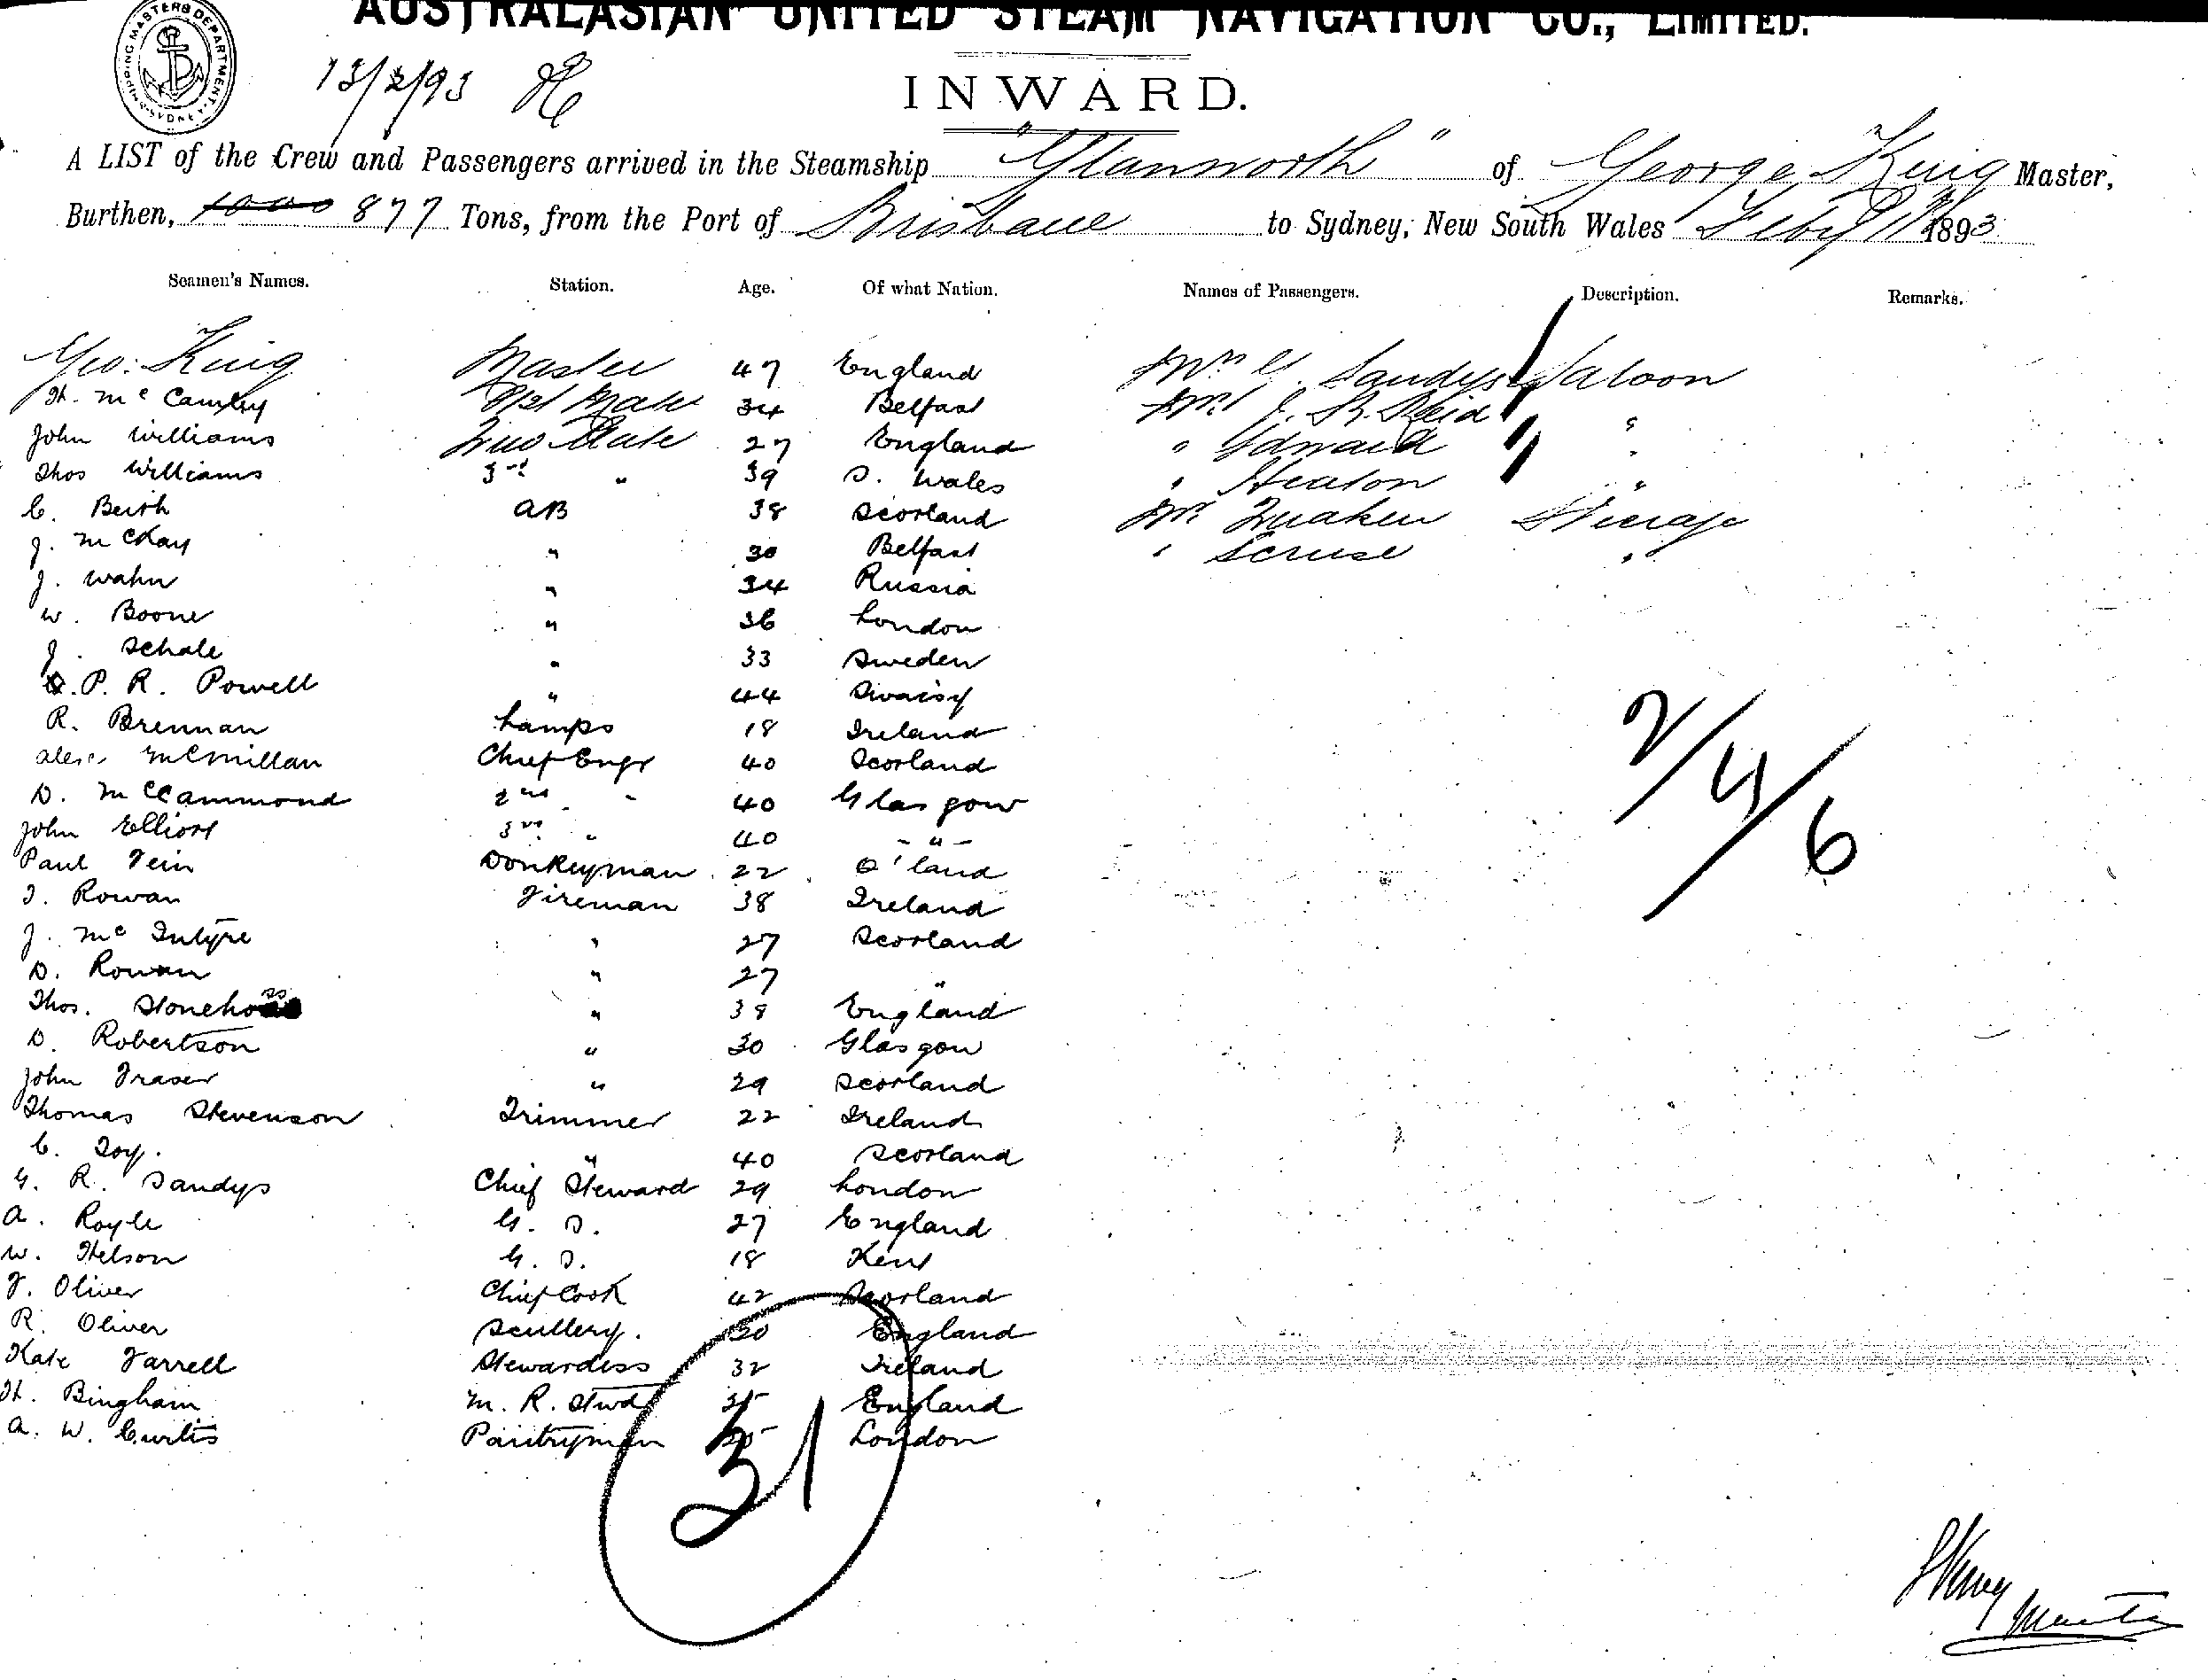 AUSTRALASIAN UNITED STEAM NAVIGATION CO., LIMITED.
SHIPPING MASTERS DEPARTMENT SYDNEY
13/2/93
INWARD.
A LIST of the Crew and Passengers arrived in the Steamship "Glanworth" of George King Master,
Burthen, 1000 877 Tons, from the Port of Brisbane to Sydney, New South Wales Feby 1893
Seamen's Names. Station. Age. Of what Nation. Names of Passengers. Description. Remarks.
Geo: King Master 47 England Mrs G. Sandys Saloon
H. Mc 1st Mate 34 Belfast Mrs J. R. Reid "
John Williams Mate 27 England " Edward "
Thos Williams 3rd " 39 S. Wales " Heaton "
C. Beith AB 38 Scotland Mr Steerage
J. McKay " 30 Belfast " Scruse "
J. Wahn " 34 Russia
W. Boone " 36 London
J. Schale " 33 Sweden
P. R. Powell " 44
R. Brennan Lamps 18 Ireland
Alexr McMillan Chief Engr 40 Scotland
D. McCammond 2nd " 40 Glasgow
John Elliott 3rd " 40 - " -
Paul Fein Donkeyman 22 Q'land
J. Rowan Fireman 38 Ireland
J. Mc Intyre " 27 Scotland
D. Rowan " 27 "
Thos. " 38 England
D. Robertson " 30 Glasgow
John Fraser " 29 Scotland
Thomas Stevenson Trimmer 22 Ireland
C. Toy. " 40 Scotland
G. R. Sandys Chief Steward 29 London
A. Royle G. S. 27 England
W. Nelson G. S. 18 Kent
F. Oliver Chief Cook 42 Scotland
R. Oliver Scullery. 20 England
Kate Farrell Stewardess 32 Ireland
H. Bingham M. R. Stwd England
A. W. Curtis Pantryman London
2/4/6
31
Master